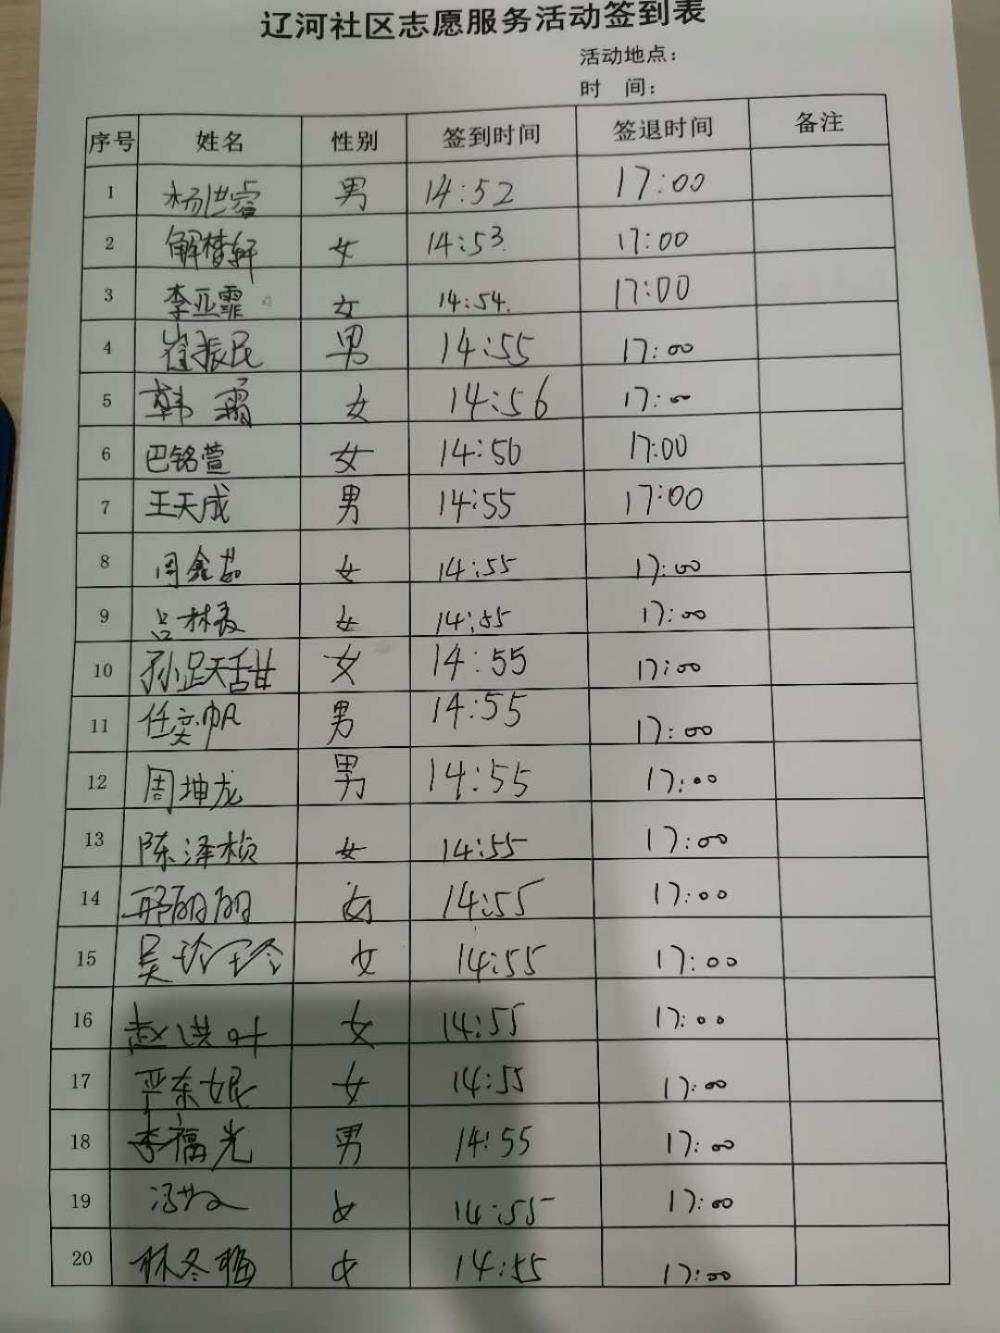 辽河社区志愿服务活动签到表
活动地点：
时 间：
序号 姓名 性别 签到时间 签退时间 备注
1 杨世睿 男 14:52 17:00
2 解梦轩 女 14:53 17:00
3 李亚霏 女 14:54 17:00
4 崔振民 男 14:55 17:00
5 韩霜 女 14:56 17:00
6 巴铭萱 女 14:56 17:00
7 王天成 男 14:55 17:00
8 周鑫茹 女 14:55 17:00
9 吕林 女 14:55 17:00
10 孙跃甜 女 14:55 17:00
11 任奕帆 男 14:55 17:00
12 周坤龙 男 14:55 17:00
13 陈泽桢 女 14:55 17:00
14 邢丽丽 女 14:55 17:00
15 吴玲玲 女 14:55 17:00
16 赵洪叶 女 14:55 17:00
17 严东妮 女 14:55 17:00
18 李福光 男 14:55 17:00
19 女 14:55 17:00
20 林冬梅 女 14:55 17:00